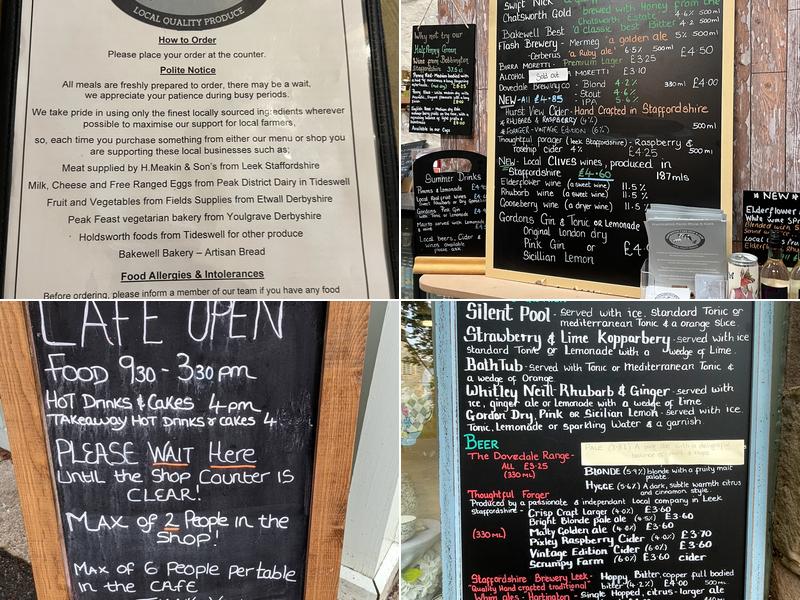 LOCAL QUALITY PRODUCE
How to Order
Please place your order at the counter.
Polite Notice
All meals are freshly prepared to order, there may be a wait,
we appreciate your patience during busy periods.
We take pride in using only the finest locally sourced ingredients wherever
possible to maximise our support for local farmers,
so, each time you purchase something from either our menu or shop you
are supporting these local businesses such as;
Meat supplied by H.Meakin & Son's from Leek Staffordshire
Milk, Cheese and Free Ranged Eggs from Peak District Dairy in Tideswell
Fruit and Vegetables from Fields Supplies from Etwall Derbyshire
Peak Feast vegetarian bakery from Youlgrave Derbyshire
Holdsworth foods from Tideswell for other produce
Bakewell Bakery – Artisan Bread
Food Allergies & Intolerances
Before ordering, please inform a member of our team if you have any food
Why not try our
Halfpenny Green
Wine from Bobbington
Staffordshire
Available in our Cafe
Summer Drinks
Pimms & Lemonade
Local beers, Cider &
wines available
Swift Nick
Chatsworth Gold brewed with Honey from the
Chatsworth Estate 4.6% 500ml
Bakewell Best 'a classic best Bitter' 4.2 500ml
Flash Brewery - Mermeg 'a golden ale' 5% 500ml
Cerberus 'a Ruby ale' 6.5% 500ml £4.50
Birra Moretti - Premium Lager £3.25
Alcohol Sold out Moretti £3.10
Dovedale Brewing Co - Blond 4.2% 330ml £4.00
- Stout 4.6%
NEW - All £4.85 - IPA 5.6%
Hurst View Cider - Hand Crafted in Staffordshire
Rhubarb & Raspberry (4%)
& Forager - Vintage Edition (6%) 500ml
Thoughtful forager (Leek Staffordshire) - Raspberry &
rosehip cider 4% £4.25 500ml
New - Local Clives wines, produced in
£4.60 187mls
Elderflower wine (a sweet wine) 11.5%
Rhubarb wine (a sweet wine) 11.5%
Gooseberry wine (a dryer wine) 11.5%
Gordons Gin & Tonic or Lemonade
Original London dry
Pink Gin or £4.
Sicillian Lemon
"NEW"
Elderflower
CAFE OPEN
FOOD 9.30 - 3.30pm
HOT Drinks & Cakes 4pm
Takeaway Hot Drinks or cakes 4
PLEASE WAIT Here
Until the Shop Counter is
CLEAR!
Max of 2 People in the
Shop!
Max of 6 People per table
in the CAFE
Silent Pool - served with ice, standard Tonic or
mediterranean Tonic & a orange slice.
Strawberry & Lime Kopparberg - served with ice
standard Tonic or Lemonade with a wedge of Lime.
BathTub - served with Tonic or Mediterranean Tonic &
a wedge of Orange
Whitley Neill Rhubarb & Ginger - served with
ice, ginger ale or lemonade with a wedge of Lime.
Gordon Dry, Pink or Sicilian Lemon - served with ice,
Tonic, Lemonade or sparkling Water & a garnish.
BEER
The Dovedale Range -
ALL £3.25
(330ML)
BLONDE (5.9%) blonde with a fruity malt
palate.
HYGGE (5.6%) A dark, subtle warmth citrus
and cinnamon style.
Thoughtful Forger
Produced by a passionate & independant Local company in Leek
Staffordshire - Crisp Craft Larger (4.0%) £3.60
Bright Blonde pale ale (4.5%) £3.60
(330ML) Malty Golden ale (4.0%)
Pixley Raspberry Cider (4.0%) £3.70
Vintage Edition Cider (6.0%) £3.60
Scrumpy Farm (6.0%) £3.60 cider
Staffordshire Brewery Leek - Hoppy Bitter, copper full bodied
"Quality Hand crafted traditional" bitter (4.2%) £4.00 500ml
Whim Ales - Hartington - Single Hopped, citrus - larger ale